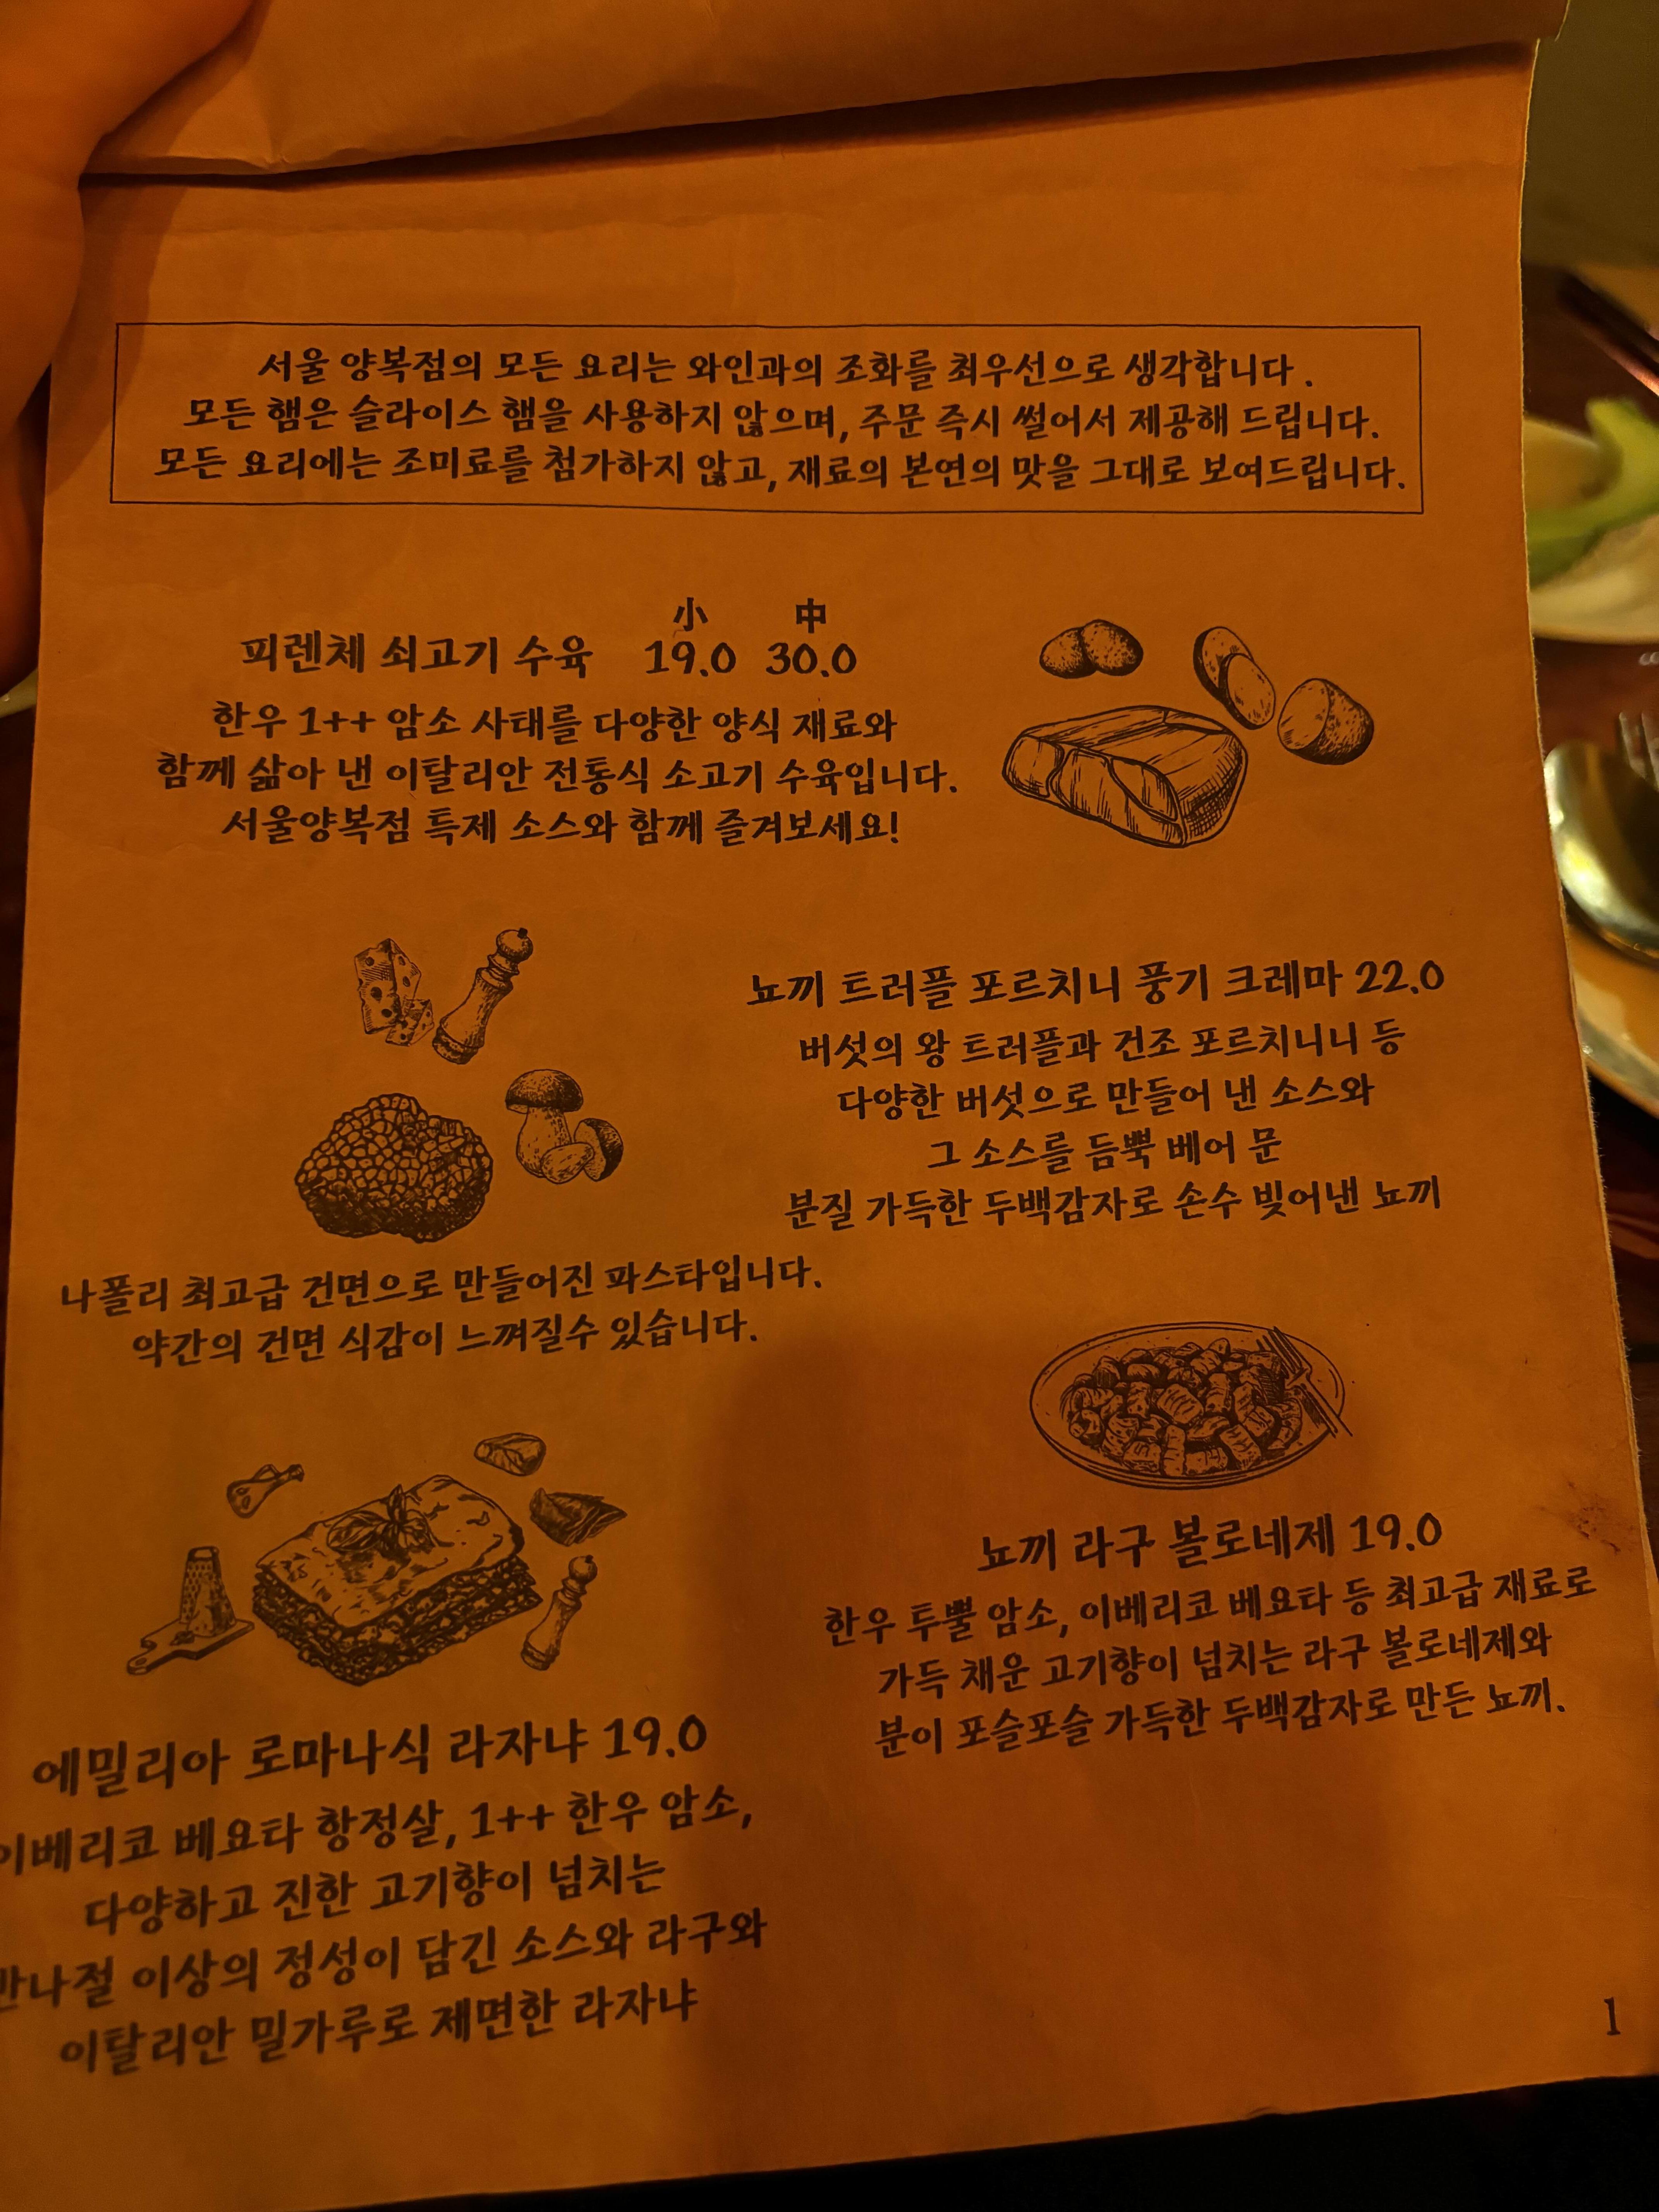 서울 양복점의 모든 요리는 와인과의 조화를 최우선으로 생각합니다.
모든 햄은 슬라이스 햄을 사용하지 않으며, 주문 즉시 썰어서 제공해 드립니다.
모든 요리에는 조미료를 첨가하지 않고, 재료의 본연의 맛을 그대로 보여드립니다.
小 中
피렌체 쇠고기 수육 19.0 30.0
한우 1++ 암소 사태를 다양한 양식 재료와
함께 삶아 낸 이탈리안 전통식 소고기 수육입니다.
서울양복점 특제 소스와 함께 즐겨보세요!
뇨끼 트러플 포르치니 풍기 크레마 22.0
버섯의 왕 트러플과 건조 포르치니니 등
다양한 버섯으로 만들어 낸 소스와
그 소스를 듬뿍 베어 문
분질 가득한 두백감자로 손수 빚어낸 뇨끼
나폴리 최고급 건면으로 만들어진 파스타입니다.
약간의 건면 식감이 느껴질수 있습니다.
뇨끼 라구 볼로네제 19.0
한우 투뿔 암소, 이베리코 베요타 등 최고급 재료로
가득 채운 고기향이 넘치는 라구 볼로네제와
분이 포슬포슬 가득한 두백감자로 만든 뇨끼.
에밀리아 로마나식 라자냐 19.0
이베리코 베요타 항정살, 1++ 한우 암소,
다양하고 진한 고기향이 넘치는
반나절 이상의 정성이 담긴 소스와 라구와
이탈리안 밀가루로 제면한 라자냐
1